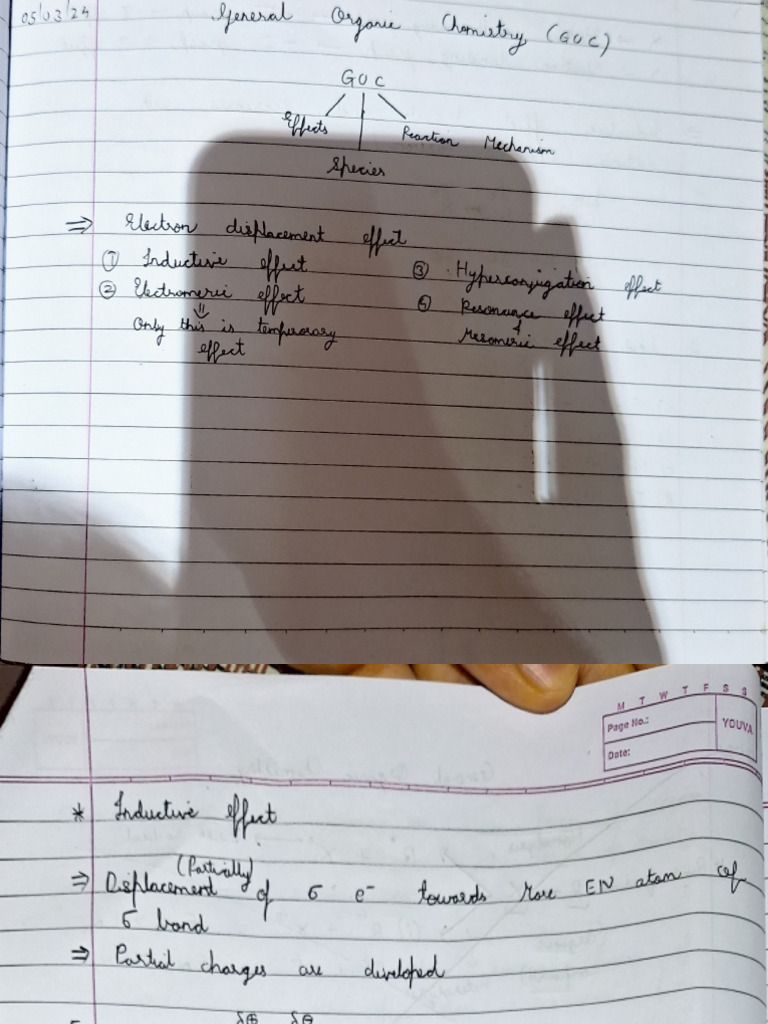 05/03/24
General Organic Chemistry (GOC)
GOC
Effects
Reaction Mechanism
Species
⇒ Electron displacement effect
① Inductive effect
② Electromeric effect
⇓
Only this is temporary
effect
③ Hyperconjugation effect
Resonance effect
↓
Mesomeric effect
M T W T F S S
Page No.:
Date:
YOUVA
* Inductive effect
(Partially)
⇒ Displacement of σ e⁻ towards More EN atom of
σ bond
⇒ Partial charges are developed
δ⊕ δ⊖